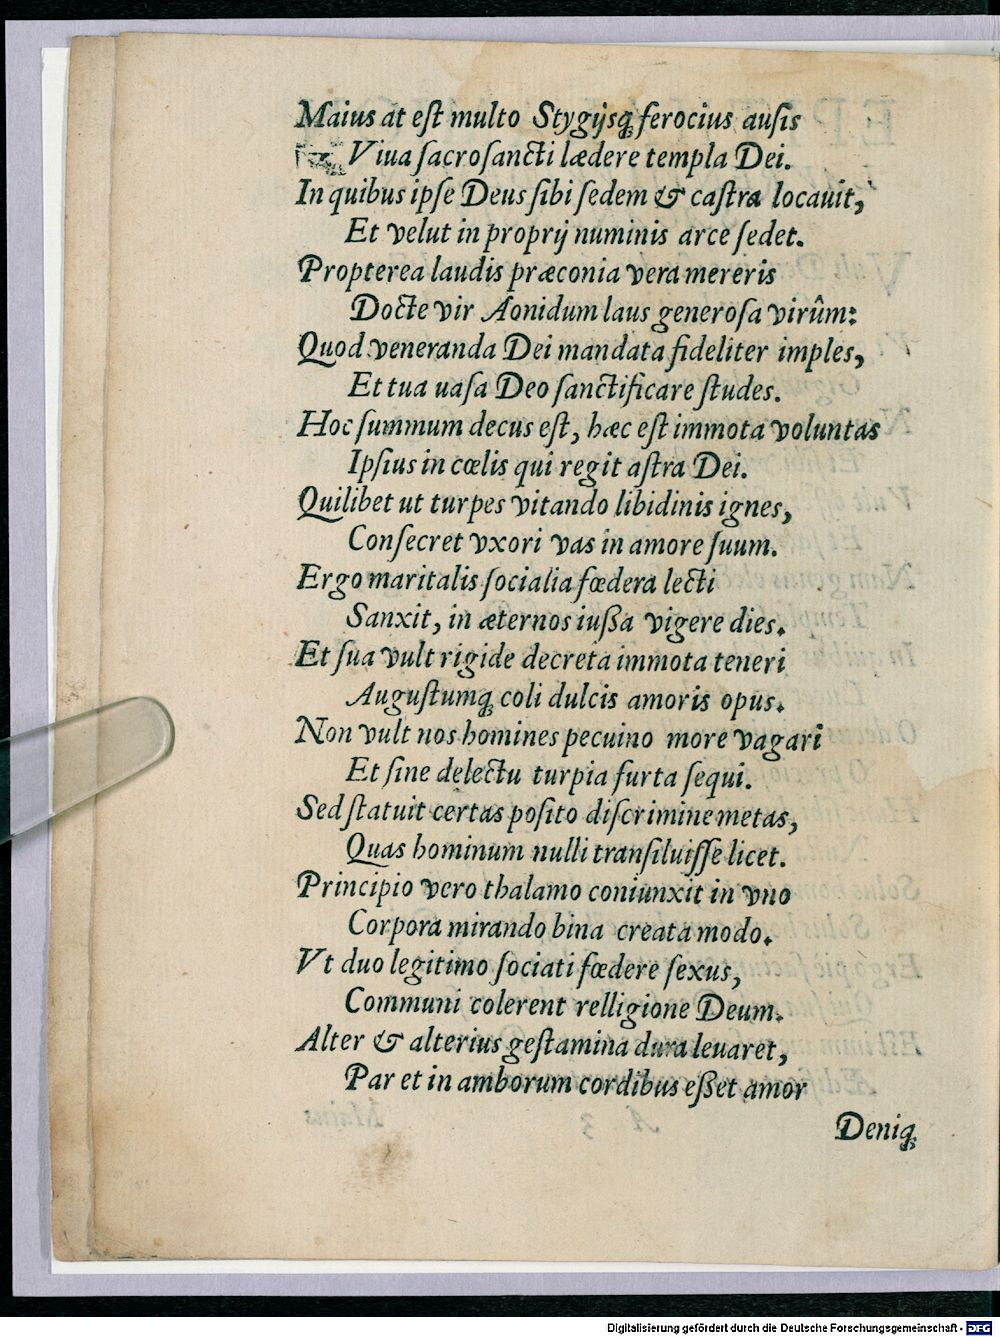 Maius at eſt multo Stygijsq́ꝫ ferocius auſis
Viua ſacroſancti lædere templa Dei.
In quibus ipſe Deus ſibi ſedem & caſtra locauit,
Et velut in proprij numinis arce ſedet.
Propterea laudis præconia vera mereris
Docte vir Aonidum laus generoſa virûm:
Quod veneranda Dei mandata fideliter imples,
Et tua uaſa Deo ſanctificare ſtudes.
Hoc ſummum decus eſt, hæc eſt immota voluntas
Ipſius in cœlis qui regit aſtra Dei.
Quilibet ut turpes vitando libidinis ignes,
Conſecret vxori vas in amore ſuum.
Ergo maritalis ſocialia fœdera lecti
Sanxit, in æternos iuſſa vigere dies.
Et ſua vult rigide decreta immota teneri
Auguſtumq́ꝫ coli dulcis amoris opus.
Non vult nos homines pecuino more vagari
Et ſine delectu turpia furta ſequi.
Sed ſtatuit certas poſito diſcrimine metas,
Quas hominum nulli tranſiluiſſe licet.
Principio vero thalamo coniunxit in vno
Corpora mirando bina creata modo.
Vt duo legitimo ſociati fœdere ſexus,
Communi colerent relligione Deum.
Alter & alterius geſtamina dura leuaret,
Par et in amborum cordibus eſſet amor
Deniq́ꝫ
Digitalisierung gefördert durch die Deutsche Forschungsgemeinschaft - DFG